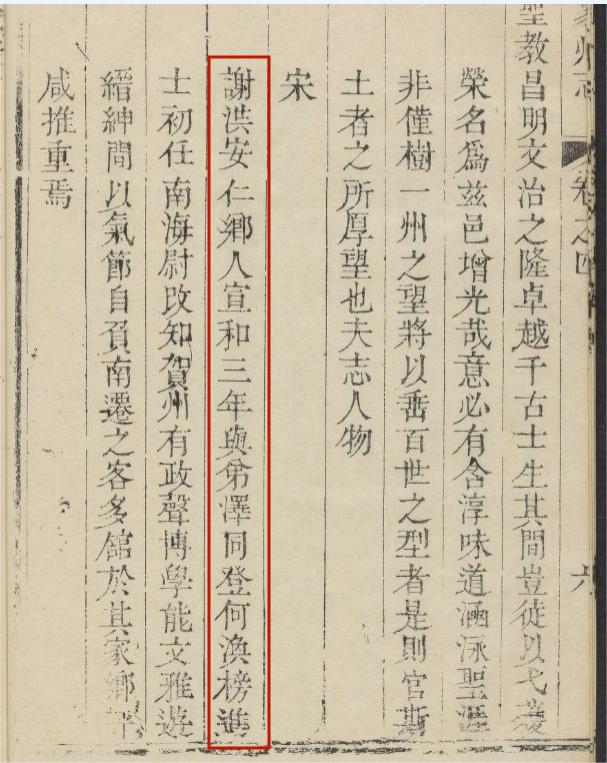 象州志 卷之四 六
聖教昌明文治之隆卓越千古士生其間豈徒以弋獲
榮名爲茲邑增光哉意必有含淳味道涵泳聖涯
非僅樹一州之望將以埀百世之型者是則官斯
土者之所厚望也夫志人物
宋
謝洪安仁鄉人宣和三年與弟澤同登何渙榜進
士初任南海尉改知賀州有政聲博學能文雅遊
縉紳間以氣節自負南遷之客多舘於其家鄉評
咸推重焉